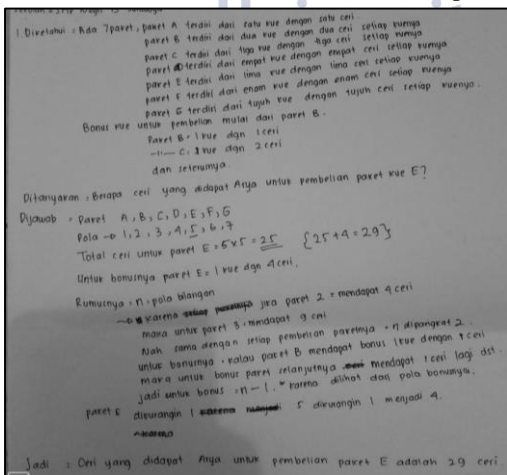 1. Diketahui = Ada 7 paket, paket A terdiri dari satu kue dengan satu ceri
paket B terdiri dari dua kue dengan dua ceri setiap kuenya
paket C terdiri dari tiga kue dengan tiga ceri setiap kuenya
paket D terdiri dari empat kue dengan empat ceri setiap kuenya
paket E terdiri dari lima kue dengan lima ceri setiap kuenya
paket F terdiri dari enam kue dengan enam ceri setiap kuenya
paket G terdiri dari tujuh kue dengan tujuh ceri setiap kuenya.
Bonus kue untuk pembelian mulai dari paket B.
Paket B = 1 kue dgn 1 ceri
-11- C. 1 kue dgn 2 ceri
dan seterusnya.
Ditanyakan : Berapa ceri yang didapat Arya untuk pembelian paket kue E?
Dijawab = Paket A, B, C, D, E, F, G
Pola → 1, 2, 3, 4, 5, 6, 7
Total ceri untuk paket E = 5x5 = 25 {25+4 = 29}
Untuk bonusnya paket E = 1 kue dgn 4 ceri.
Rumusnya = n = pola bilangan
→ karena jika paket 2 = mendapat 4 ceri
maka untuk paket 3 = mendapat 9 ceri
Nah sama dengan setiap pembelian paketnya = n dipangkat 2.
untuk bonusnya = kalau paket B mendapat bonus 1 kue dengan 1 ceri
maka untuk bonus paket selanjutnya mendapat 1 ceri lagi dst.
jadi untuk bonus = n-1. karena dilihat dari pola bonusnya.
paket E dikurangin 1 5 dikurangin 1 menjadi 4.
Jadi = Ceri yang didapat Arya untuk pembelian paket E adalah 29 ceri.